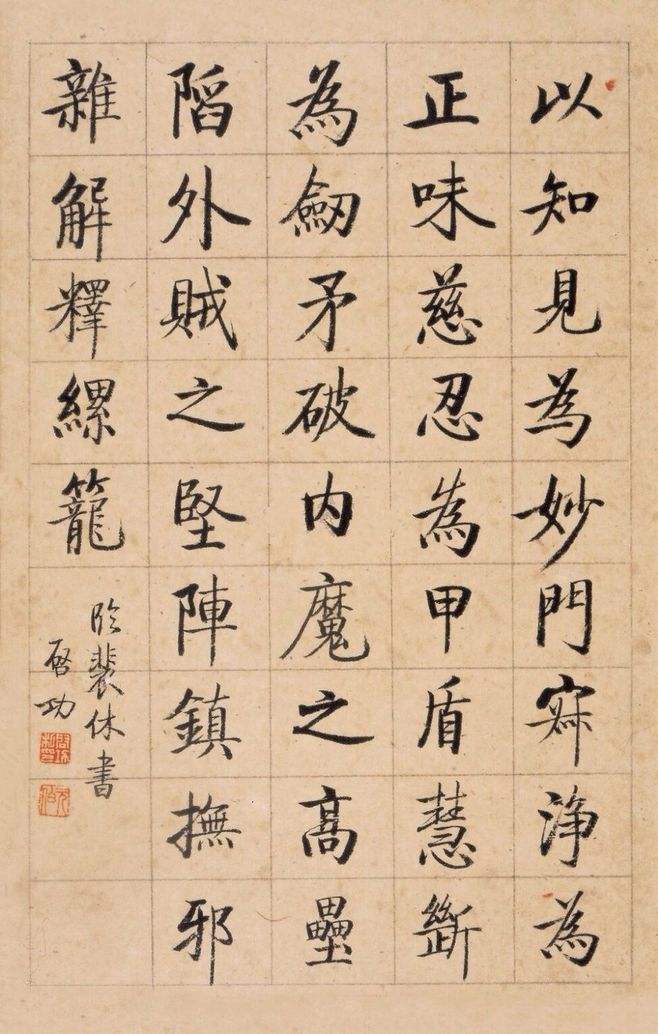 以知見為妙門寂淨為
正味慈忍為甲盾慧斷
為劒矛破內魔之高壘
陷外賊之堅陣鎮撫邪
雜解釋縲籠
臨裴休書
啓功